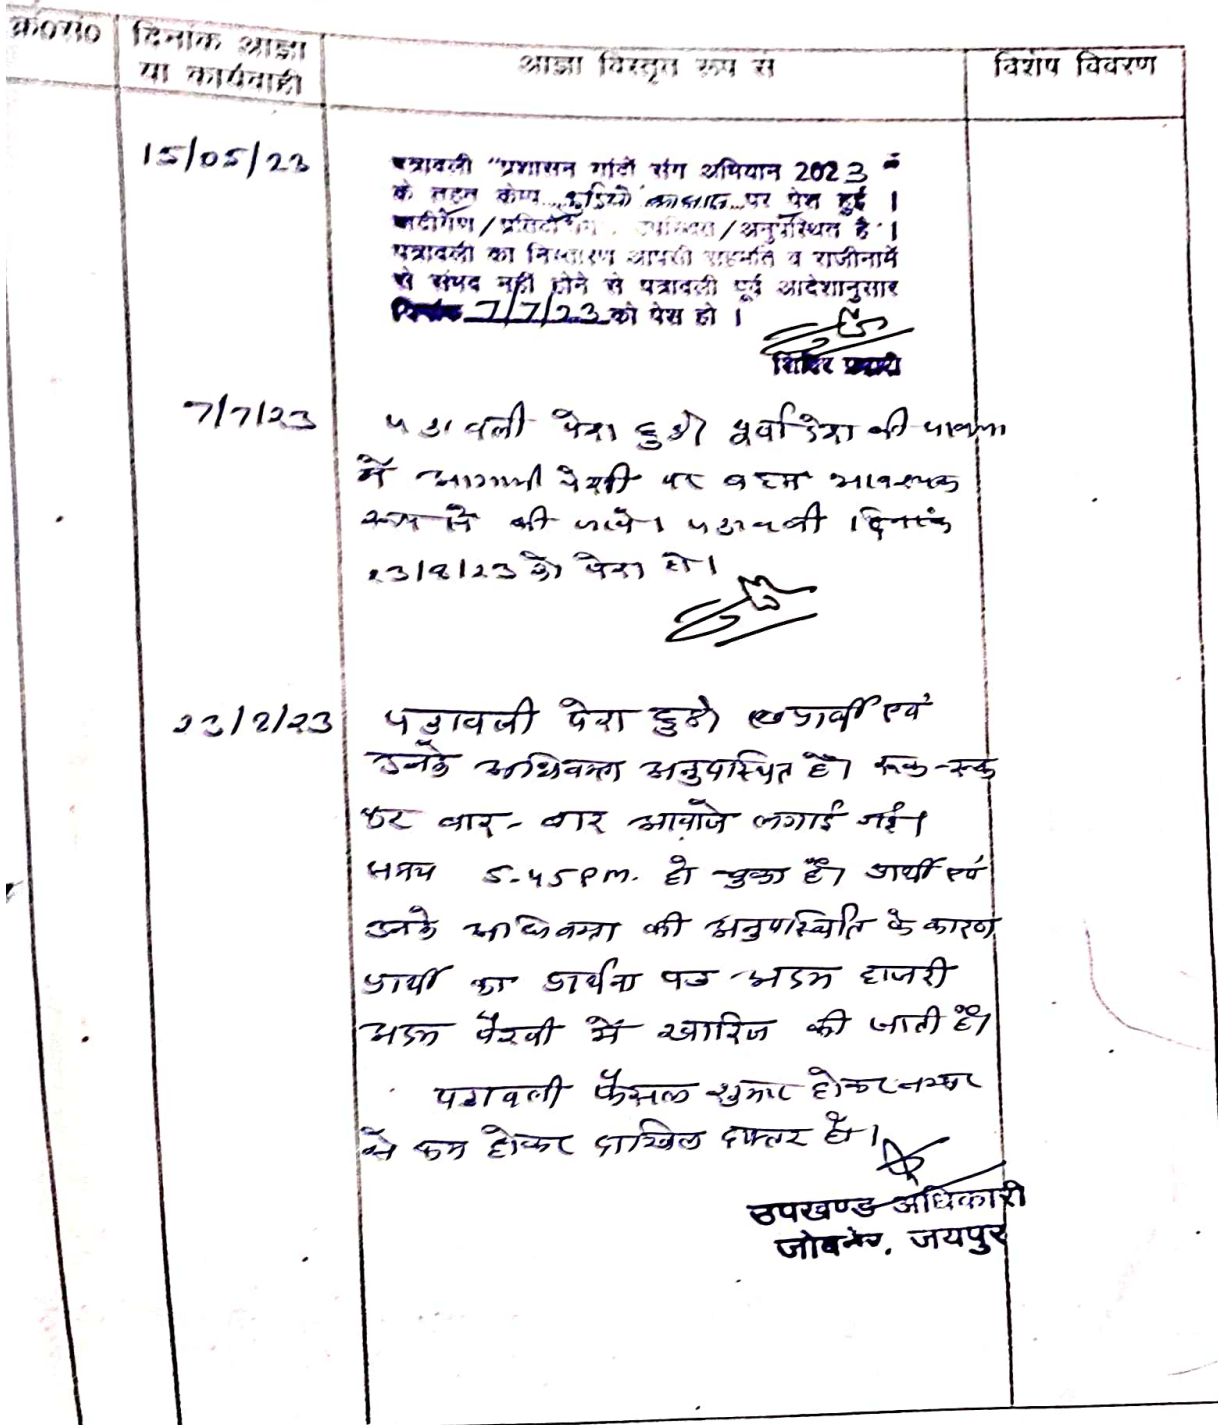 क्र०सं० दिनांक आज्ञा या कार्यवाही आज्ञा विस्तृत रूप से विशेष विवरण
15/05/23
पत्रावली "प्रशासन गांवों संग अभियान 2023 "
के तहत केम्प पर पेश हुई ।
वादीगण/प्रतिवादीगण उपस्थित/अनुपस्थित है ।
पत्रावली का निस्तारण आपसी सहमति व राजीनामें
से संभव नहीं होने से पत्रावली पूर्व आदेशानुसार
दिनांक 7/7/23 को पेश हो ।
शिविर प्रभारी
7/7/23 पत्रावली पेश हुई। पूर्वादेश की पालना
में आगामी पेशी पर बहस आवश्यक
रूप से की जावे। पत्रावली दिनांक
23/8/23 को पेश हो।
23/8/23 पत्रावली पेश हुई। प्रार्थी एवं
उनके अधिवक्ता अनुपस्थित है। रूक-रूक
कर बार-बार आवाजे लगाई गई।
समय 5.45 P.m. हो चुका है। प्रार्थी एवं
उनके अधिवक्ता की अनुपस्थिति के कारण
प्रार्थी का प्रार्थना पत्र अदम हाजरी
अदम पैरवी में खारिज की जाती है।
पत्रावली फैसल शुमार होकर नम्बर
से कम होकर दाखिल दफ्तर हो।
उपखण्ड अधिकारी
जोबनेर, जयपुर